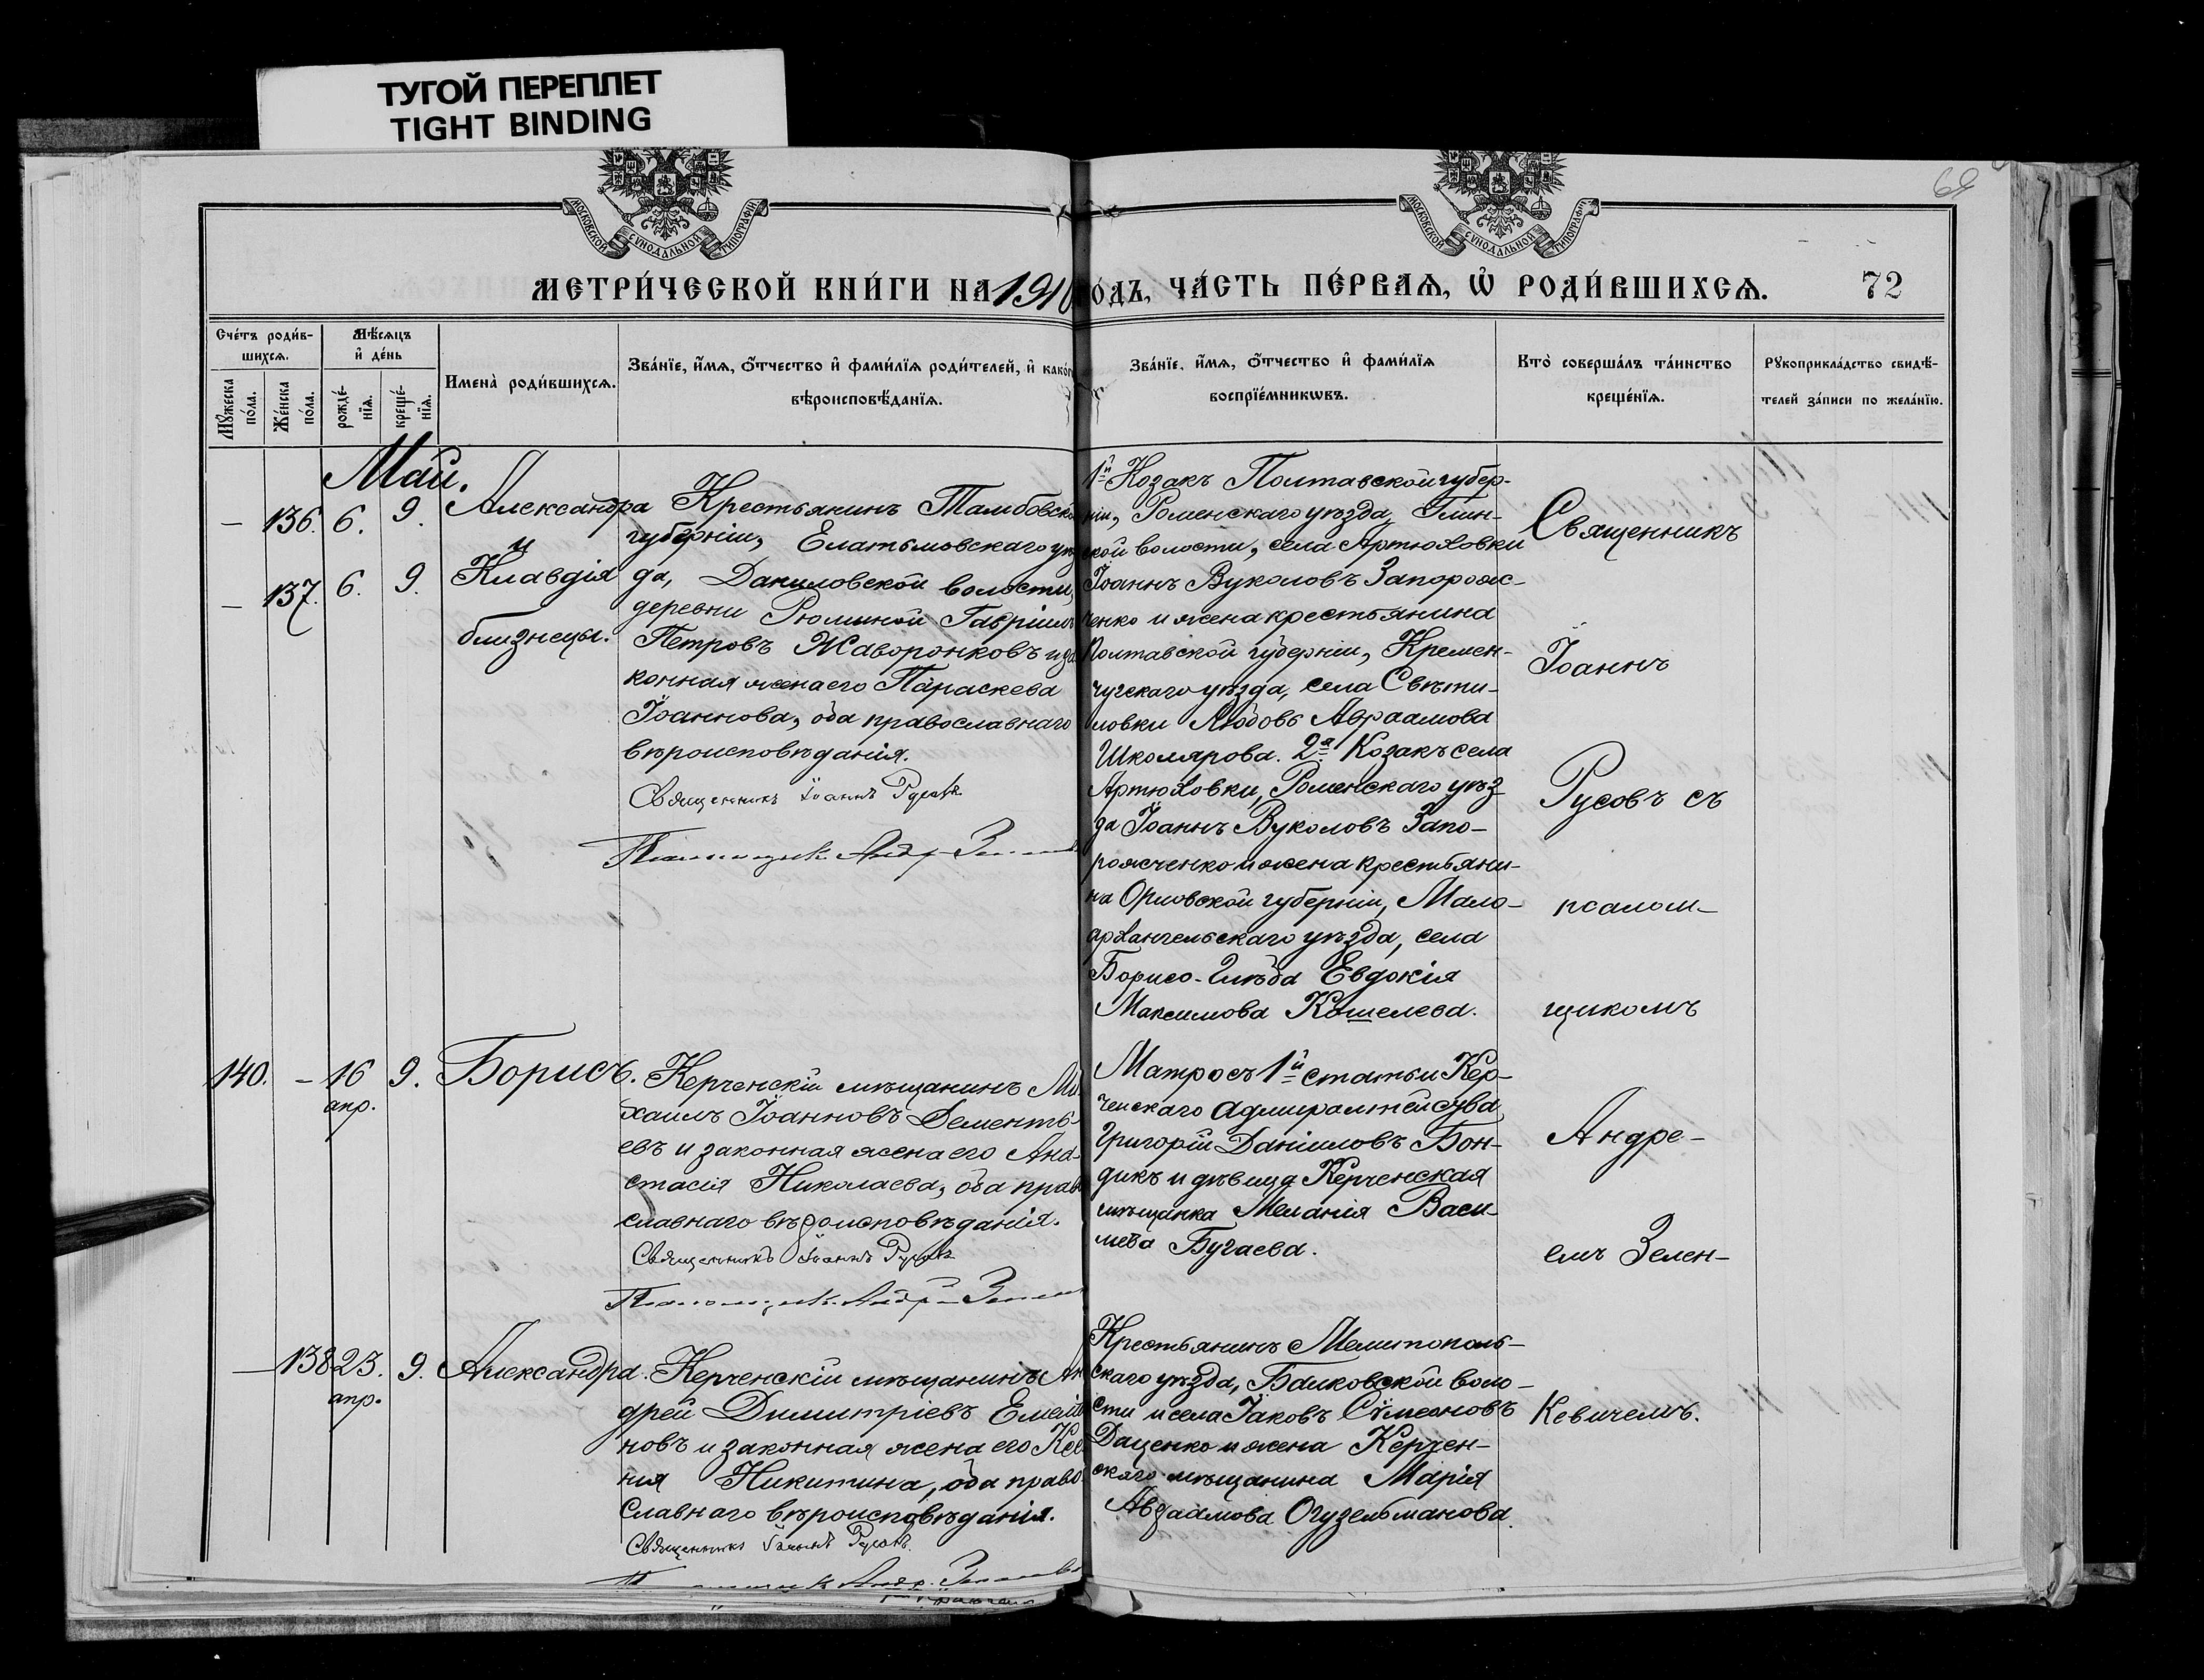 ТУГОЙ ПЕРЕПЛЕТ
TIGHT BINDING
69
МОСКОВСКОЙ СѴНОДАЛЬНОЙ ТИПОГРАФІИ
МОСКОВСКОЙ СѴНОДАЛЬНОЙ ТИПОГРАФІИ
МЕТРИ́ЧЕСКОЙ КНИ́ГИ НА 1910
О́ДЪ, ЧА́СТЬ ПЕ́РВАѦ, Ѡ҆ РОДИ́ВШИХСѦ. 72
Сче́тъ роди́в-
шихсѧ.
Мѣ́сѧцъ
и҆ де́нь
Мꙋ́жеска
по́ла.
Же́нска
по́ла.
рожде́-
нїѧ.
креще́-
нїѧ.
Имена̀ роди́вшихсѧ.
Зва́нїе, и҆́мѧ, ѻ҆́тчество и҆ фами́лїѧ роди́телей, и҆ како́г
вѣроисповѣ́данїѧ.
Зва́нїе, и҆́мѧ, ѻ҆́тчество и҆ фами́лїѧ
воспрїе́мникѡвъ.
Кто̀ соверша́лъ та́инство
креще́нїѧ.
Рꙋкоприкла́дство свидѣ́-
телей за́писи по жела́нїю.
Май.
– 136. 6. 9. Александра
и
– 137. 6. 9. Клавдія
близнецы.
Крестьянинъ Тамбовско
губерніи, Елатьмовскаго уѣ
да, Даниловской волости,
деревни Рюминой Гавріилъ
Петровъ Жаворонковъ и за
конная жена его Параскева
Іоаннова, оба православнаго
вѣроисповѣданія.
Священникъ Іоаннъ Русовъ
Псаломщикъ Андр.
1й Козакъ Полтавской губер-
ніи, Роменскаго уѣзда, Глин-
ской волости, села Артюховки
Іоаннъ Вуколовъ Запорож-
ченко и жена крестьянина
Полтавской губерніи, Кремен-
чугскаго уѣзда, села Свѣти-
ловки Любовь Авраамова
Школярова. 2я Козакъ села
Артюховки, Роменскаго уѣз-
да Іоаннъ Вуколовъ Запо-
рожченко и жена крестьяни-
на Орловской губерніи, Мало-
архангельскаго уѣзда, села
Борисо-Глѣба Евдокія
Максимова Кошелева.
Священникъ
Іоаннъ
Русовъ съ
псалом-
щикомъ
Андре-
емъ Зелен-
кевичемъ.
140. – 16 9. Борисъ.
апр.
Керченскій мѣщанинъ Ми
хаилъ Іоанновъ Дементь-
евъ и законная жена его Ана-
стасія Николаева, оба право
славнаго вѣроисповѣданія.
Священникъ Іоаннъ Русовъ
Псаломщикъ Андр.
Матросъ 1й статьи Кер-
ченскаго Адмиралтейства
Григорій Даніиловъ Бон-
дикъ и дѣвица Керченская
мѣщанка Меланія Васи-
льева Бугаева.
– 138 23. 9. Александра.
апр.
Керченскій мѣщанинъ Ан
дрей Димитріевъ Емелья
новъ и законная жена его Ксе
нія Никитина, оба право
славнаго вѣроисповѣданія.
Священникъ Іоаннъ Русовъ
Андр.
Крестьянинъ Мелитополь-
скаго уѣзда, Балковской воло-
сти и села Іаковъ Сѵмеоновъ
Даценко и жена Керчен-
скаго мѣщанина Марія
Авраамова Огузельманова.